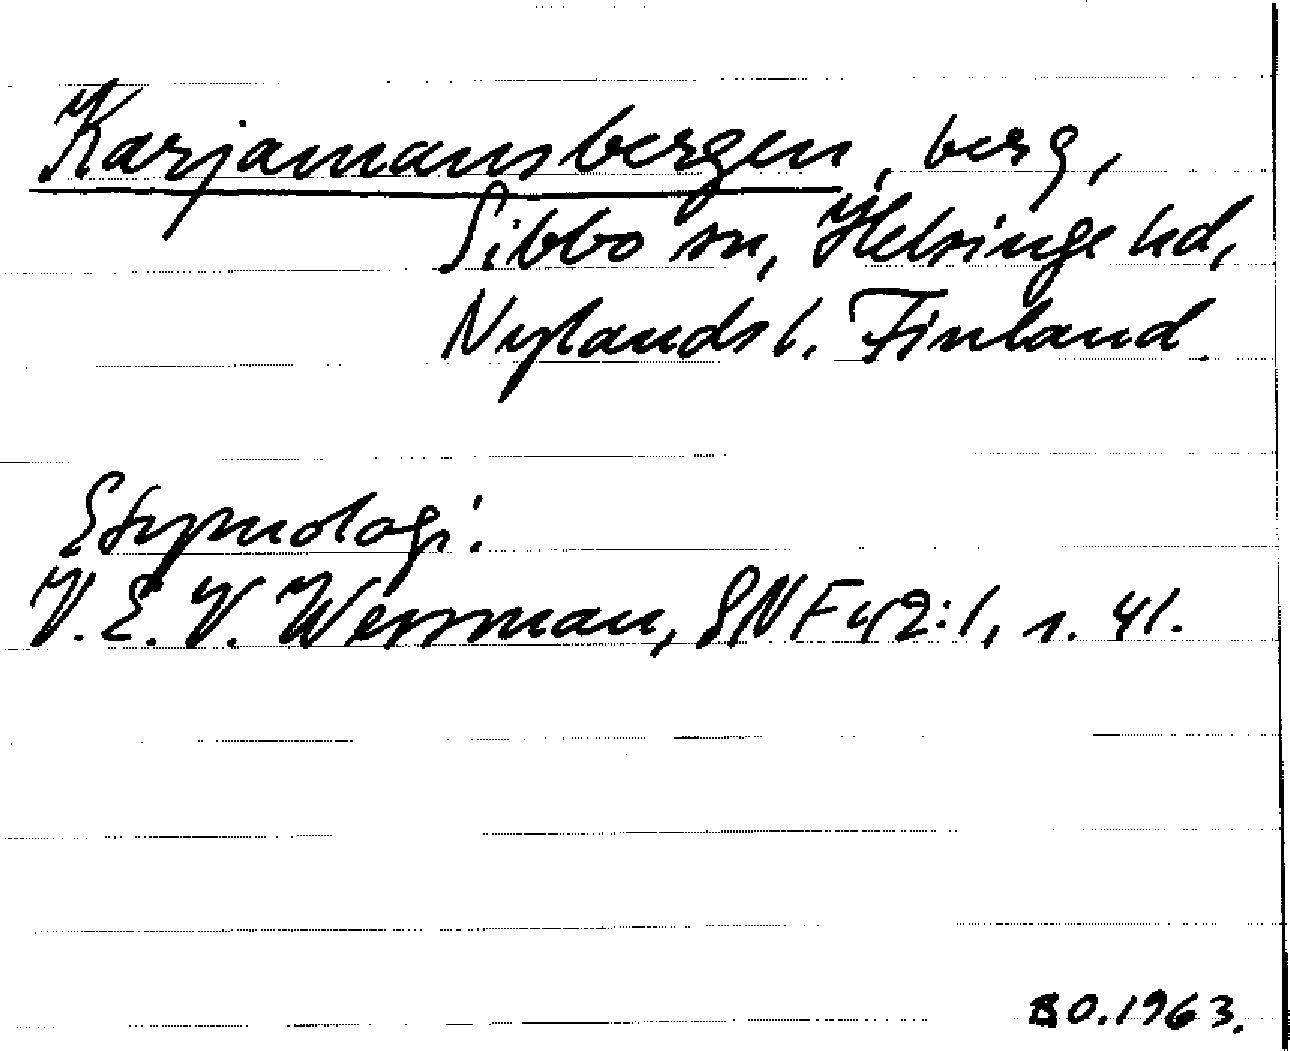 Karjamansbergen, berg,
Sibbo sn, Helsinge hd,
Nylands l. Finland.
Etymologi:
V. E. V. Wessman, SNF 42:1, s. 41.
B O. 1963.